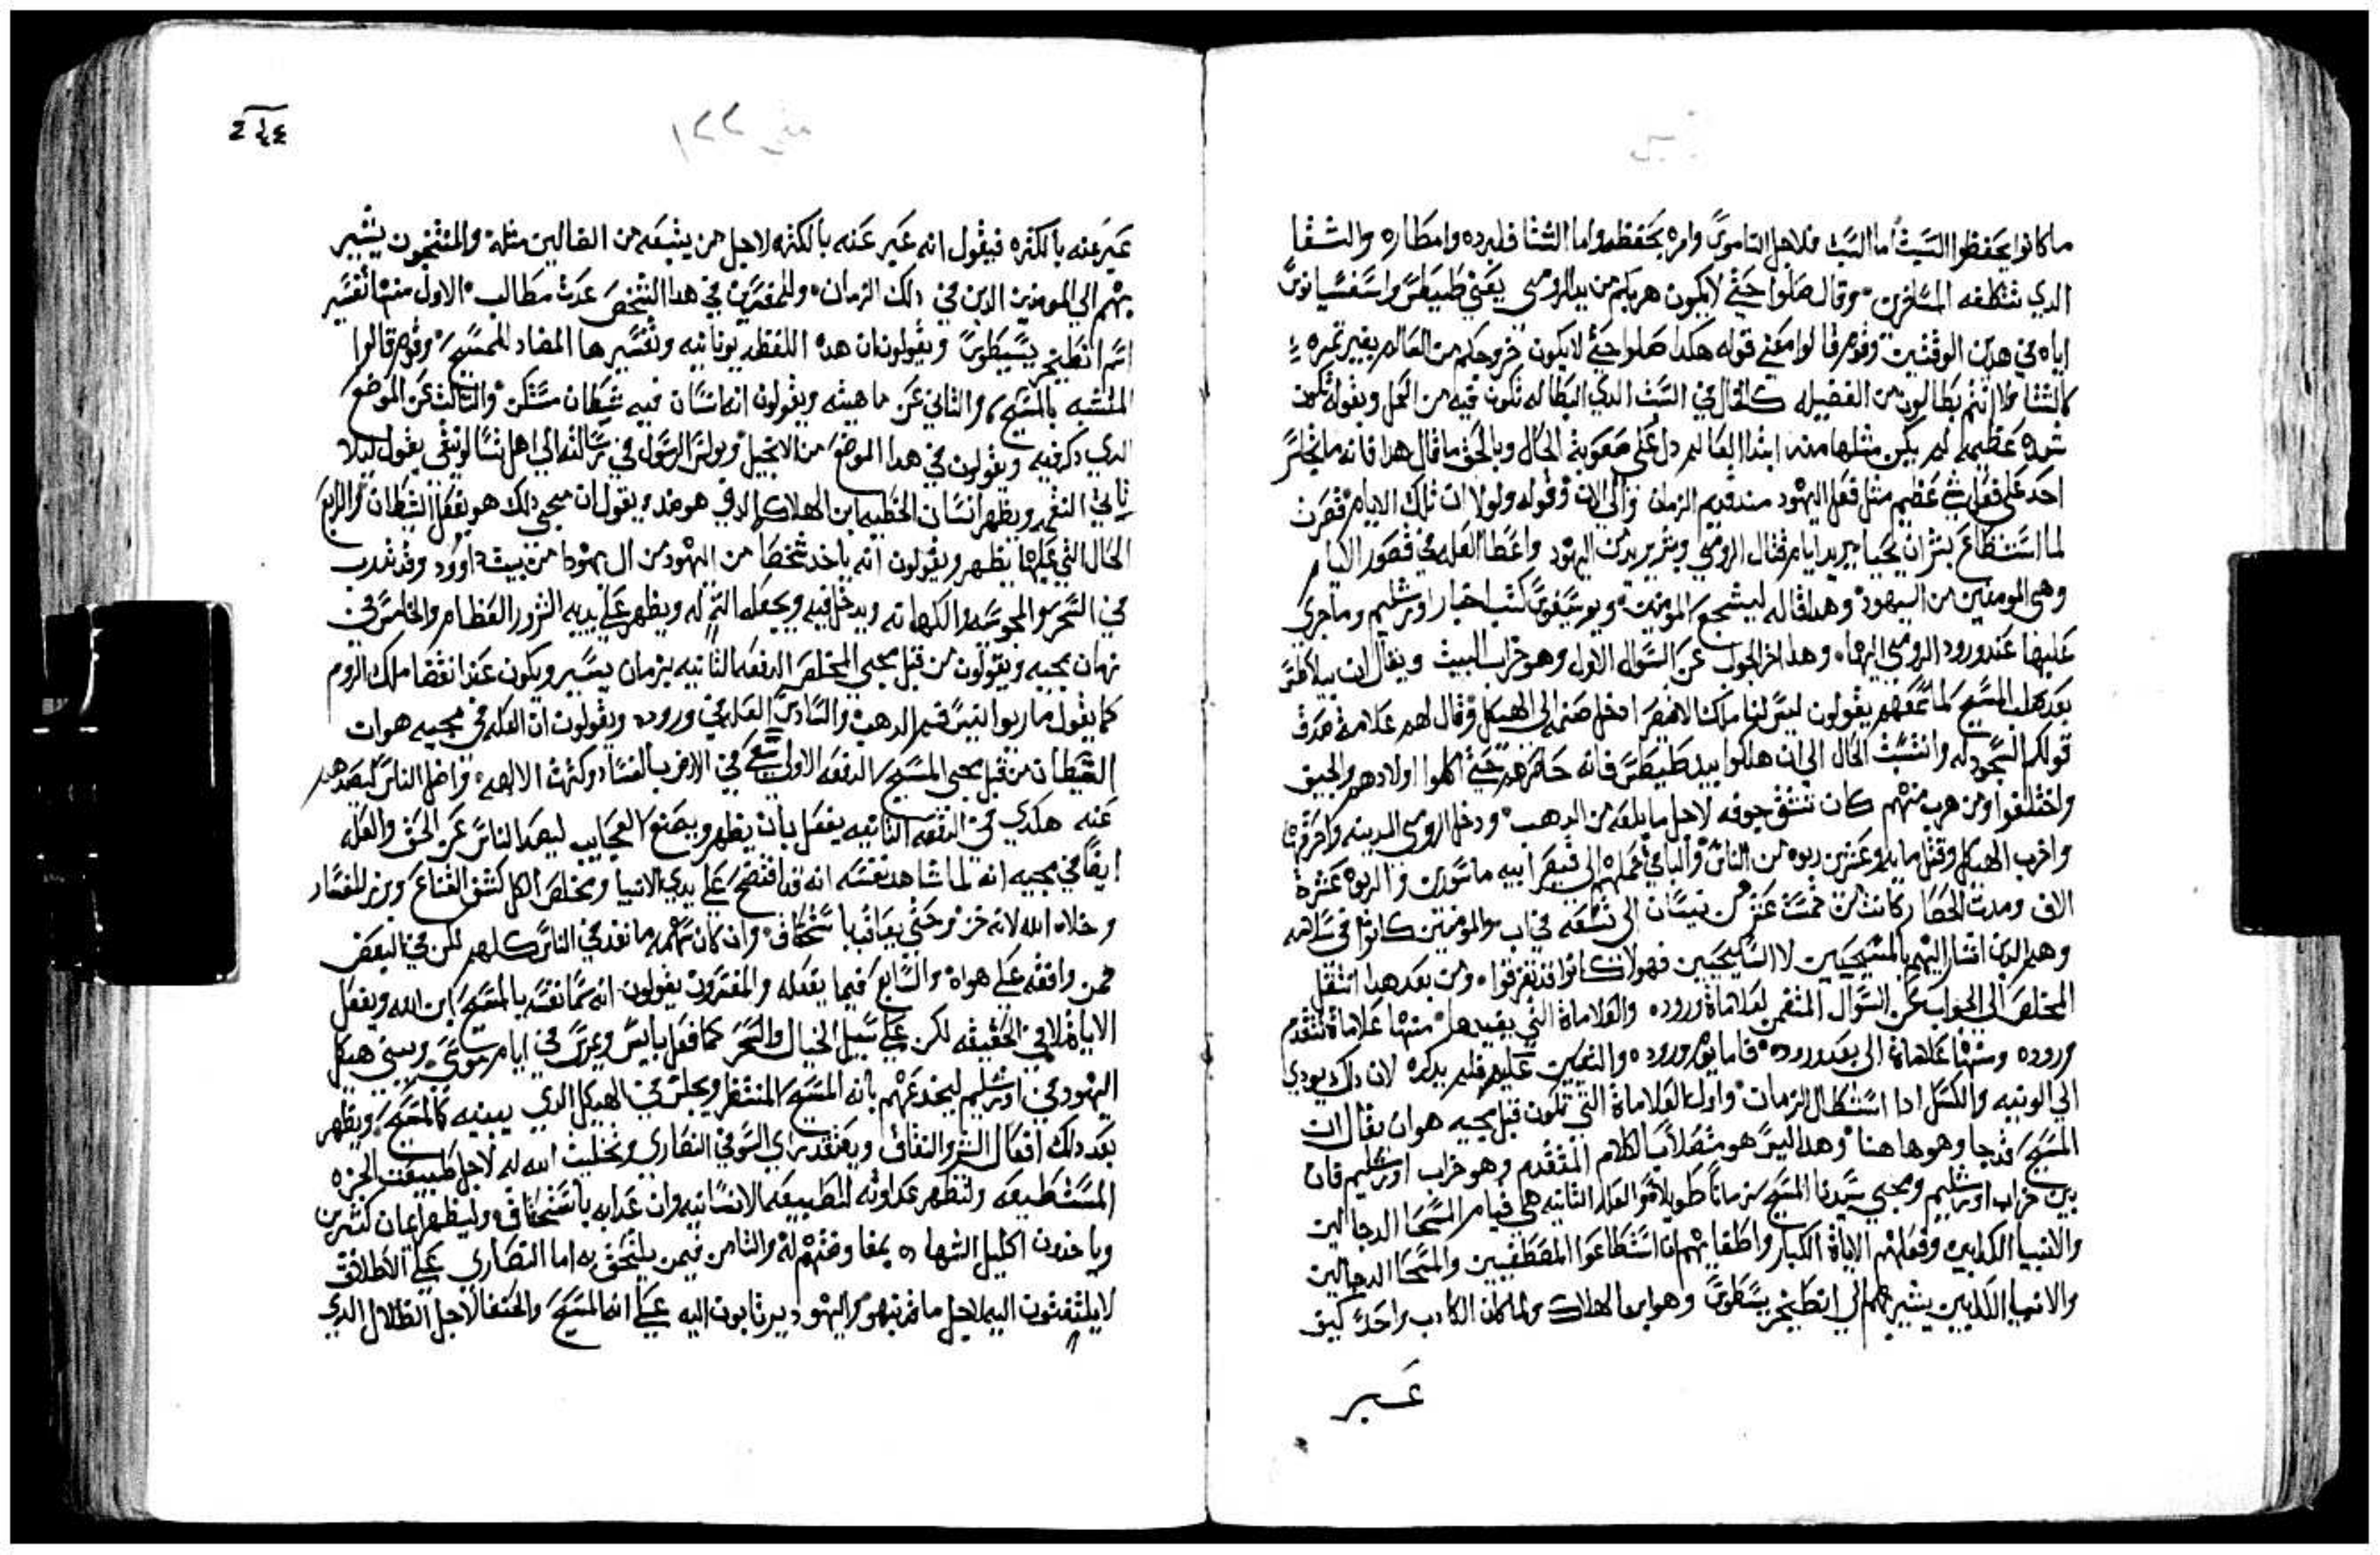 ما كانوا يحفظوا السبت اما السبت فلاجل الناموس وامره بحفظه واما الشتا فلبرده وامطاره والشقا
الدي تتكلفه المسافرين وقال صلوا حتي لا يكون هربكم من بيد الرومي يعني طيطس واسفسيانوس
اياه في هدين الوقتين وقوم قالوا معني قوله هكدا صلوا حتي لا يكون خروجكم من العالم بغير تمره
كالشتا ولا انتم بطالون من الفضيله كالحال في السبت الدي البطاله تكون فيه من العمل وبقوله تكون
شده عظيمه لم يكن مثلها مند ابتدا العالم دل علي صعوبة الحال وبالحق ما قال هدا فانه ما يجلس
احد علي فعل شي عظيم مثل فعل اليهود مند قديم الزمان والي الان وقوله ولولا ان تلك الايام قصرت
لما استطاع بشر ان يحيا يريد ايام قتال الرومي وبشر يريد من اليهود واعطا العله في قصور الايام
وهي المومنين من اليهود وهدا قاله ليشجع المومنين ويوسيفوس كتب اخبار اورشليم وما جري
عليها عند ورود الرومي اليها وهدا اخر الجواب عن السوال الاول وهو خراب البيت ويقال ان بيلاطس
بعد صلب المسيح لما سمعهم يقولون ليس لنا ملكا الا قيصر ادخل صنمه الي الهيكل وقال لهم علامة صدق
قولكم السجود له وانتسبت الحال الي ان هلكوا بيد طيطس فانه حاصرهم حتي اكلوا اولادهم والجيف
واختلفوا ومن هرب منهم كان تنشق جوفه لاجل ما بلعه من الدهب ودخل الرومي المدينه واحرقها
واخرب الهيكل وقتل مايه وعشرين ربوه من الناس والباقي حملهم الي قيصر ابيه ماسورين والربوه عشرة
الاف ومدت الحصار كانت من خمست عشر من نيسان الي تسعه في اب والمومنين كانوا في سلامه
وهم الدين اشار اليهم بالمسيحيين لا السليحيين فهولا كانوا قد تفرقوا ومن بعد هدا انتقل
المخلص الي الجواب عن السوال المتضمن لعلاماة وروده والعلاماة التي يفيدها منها علاماة تتقدم
وروده ومنها علاماة الي بعد وروده فاما يوم وروده والتعيين عليه فلم يدكره لان دلك يودي
الي الونيه والكسل ادا استطال الزمان واول العلاماة التي تكون قبل مجيه هو ان يقال ان
المسيح قد جا وهو هاهنا وهدا ليس هو متصلا بالكلام المتقدم وهو خراب اورشليم فان
بين خراب اورشليم ومجي سيدنا المسيح زمانا طويلا والعله التانيه هي قيام المسحا الدجالين
والانبيا الكدابين وفعلهم الاياة الكبار واطغايهم ان استطاعوا المصطفيين والمسحا الدجالين
والانبيا الكدابين يشير بهم الي انطيخريسطوس وهو ابن الهلاك ولما كان الكادب واحد كيف
عبر
٢٤٤
متي ١٢٢
عبر عنه بالكتره فيقول انه عبر عنه بالكتره لاجل من يتبعه من الضالين مثله والمنتخبون يشير
بهم الي المومنين الدين في دلك الزمان وللمفسرين في هدا الشخص عدت مطالب الاول منها تفسير
اسم انطيخريسيطوس ويقولون ان هده اللفظه يونانيه وتفسيرها المضاد للمسيح وقوم قالوا
المتشبه بالمسيح والتاني عن ماهيته ويقولون انه انسان فيه شيطان متسكن والتالث عن الموضع
الدي دكر فيه ويقولون في هدا الموضع من الانجيل وبولس الرسول في رسالته الي اهل تسالونيقي يقول ليلا
ياتي النقم ويظهر انسان الخطيه ابن الهلاك الدي هو ضد ويقول ان مجي دلك هو بفعل الشيطان والرابع
الحال التي عليها يظهر ويقولون انه ياخد شخصا من اليهود من ال يهودا من بيت داوود وقد تدرب
في السحر والمجوسه والكهانه ويدخل فيه ويجعله الته له ويظهر علي يديه الشرور العظام والخامس في
زمان مجيه ويقولون من قبل مجي المخلص الدفعه التانيه بزمان يسير ويكون عند انقضا ملك الروم
كما يقول ماريوانيس فم الدهب والسادس العله في وروده ويقولون ان العله في مجيه هو ان
الشيطان من قبل مجي المسيح الدفعه الاولي سعي في الارض بالفساد وكثرت الالهه واضل الناس ليصدهم
عنه هكدي في الدفعه التانيه يفعل بان يظهر ويصنع العجايب ليصد الناس عن الحق والعله
ايضا في مجيه انه لما شاهد نفسه انه قد افتضح علي يدي الانبيا ومخلص الكل كشف القناع وبرز للفساد
وخلاه الله لانه خزو حتي يعاقب باستحقاق وان كان سهمه ما نفد في الناس كلهم لكن في البعض
ممن وافقه علي هواه والسابع فيما يفعله والمفسرون يقولون انه يسما نفسه بالمسيح ابن الله ويفعل
الاياة لا في الحقيقه لكن علي سبيل الخيال والسحر كما فعل يانيس ويمبريس في ايام موسي ويبني هيكل
اليهود في اورشليم ليخدعهم بانه المسيح المنتظر ويجلس في الهيكل الدي يبنيه كالمسيح ويظهر
بعد دلك افعال الشر والنفاق ويعتقد براي السو في النصاري وتخليت الله له لاجل طبيعت الحره
المستطيعه ولتظهر عداوته للطبيعه الانسانيه وان عدابه باستحقاق وليظهر ايمان كتيرين
وياخدون اكليل الشهاده بمقاومتهم له والتامن فيمن يلتحق به اما النصاري علي الاطلاق
لا يلتفتون اليه لاجل ما قد نبهوا واليهود يرتابون اليه علي انه المسيح والحنفا لاجل الظلال الدي